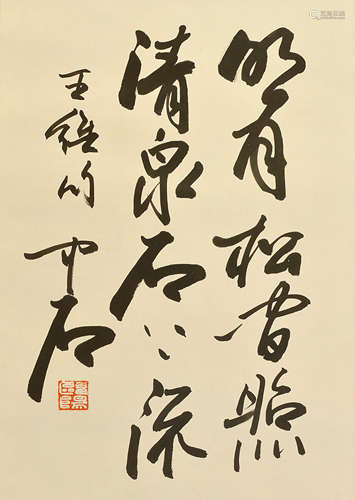 明月松间照
清泉石上流
王维句 中石